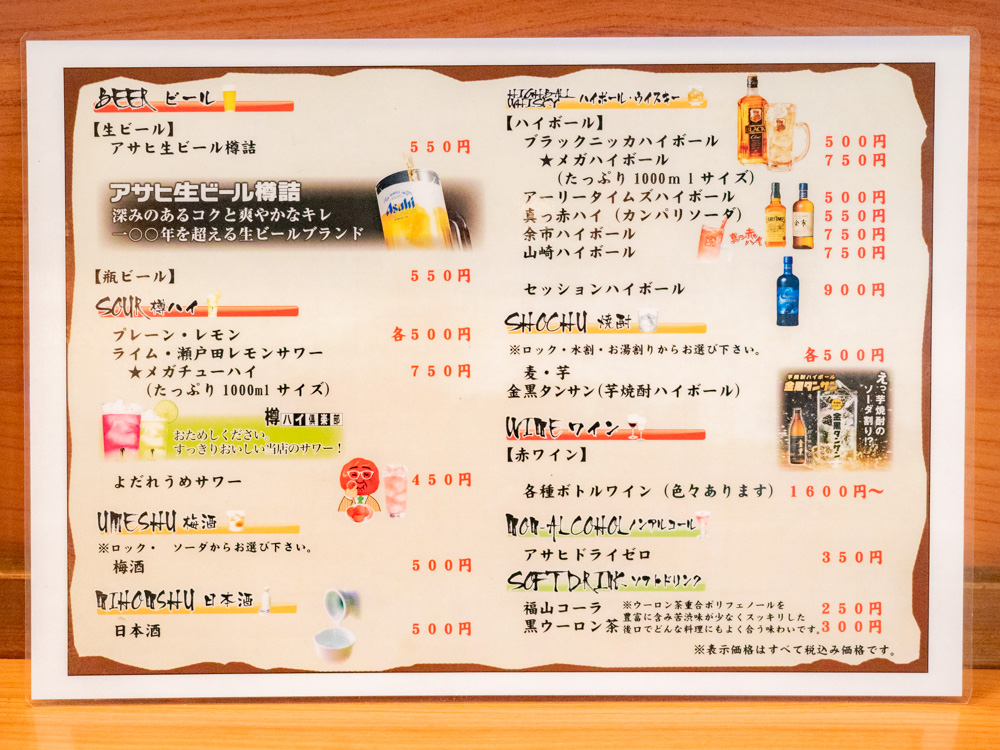 BEER ビール
【生ビール】
アサヒ生ビール樽詰 550円
アサヒ生ビール樽詰
深みのあるコクと爽やかなキレ
一〇〇年を超える生ビールブランド
Asahi
【瓶ビール】 550円
SOUR 樽ハイ
プレーン・レモン 各500円
ライム・瀬戸田レモンサワー
★メガチューハイ 750円
(たっぷり1000mlサイズ)
樽ハイ倶楽部
おためしください。
すっきりおいしい当店のサワー!
よだれうめサワー 450円
UMESHU 梅酒
※ロック・ ソーダからお選び下さい。
梅酒 500円
NIHONSHU 日本酒
日本酒 500円
HIGHBALL WHISKY ハイボール・ウイスキー
【ハイボール】
ブラックニッカハイボール 500円
★メガハイボール 750円
(たっぷり1000mlサイズ)
アーリータイムズハイボール 500円
真っ赤ハイ(カンパリソーダ) 550円
余市ハイボール 750円
真っ赤ハイ
山崎ハイボール 750円
セッションハイボール 900円
SHOCHU 焼酎
※ロック・水割・お湯割りからお選び下さい。 各500円
麦・芋
金黒タンサン(芋焼酎ハイボール)
芋焼酎ハイボール
金黒タンサン
えっ芋焼酎の
ソーダ割り!?
金黒タンサン
WINE ワイン
【赤ワイン】
各種ボトルワイン(色々あります) 1600円～
NON-ALCOHOL ノンアルコール
アサヒドライゼロ 350円
SOFT DRINK ソフトドリンク
福山コーラ 250円
黒ウーロン茶 300円
※ウーロン茶重合ポリフェノールを
豊富に含み苦渋味が少なくスッキリした
後口でどんな料理にもよく合う味わいです。
※表示価格はすべて税込み価格です。